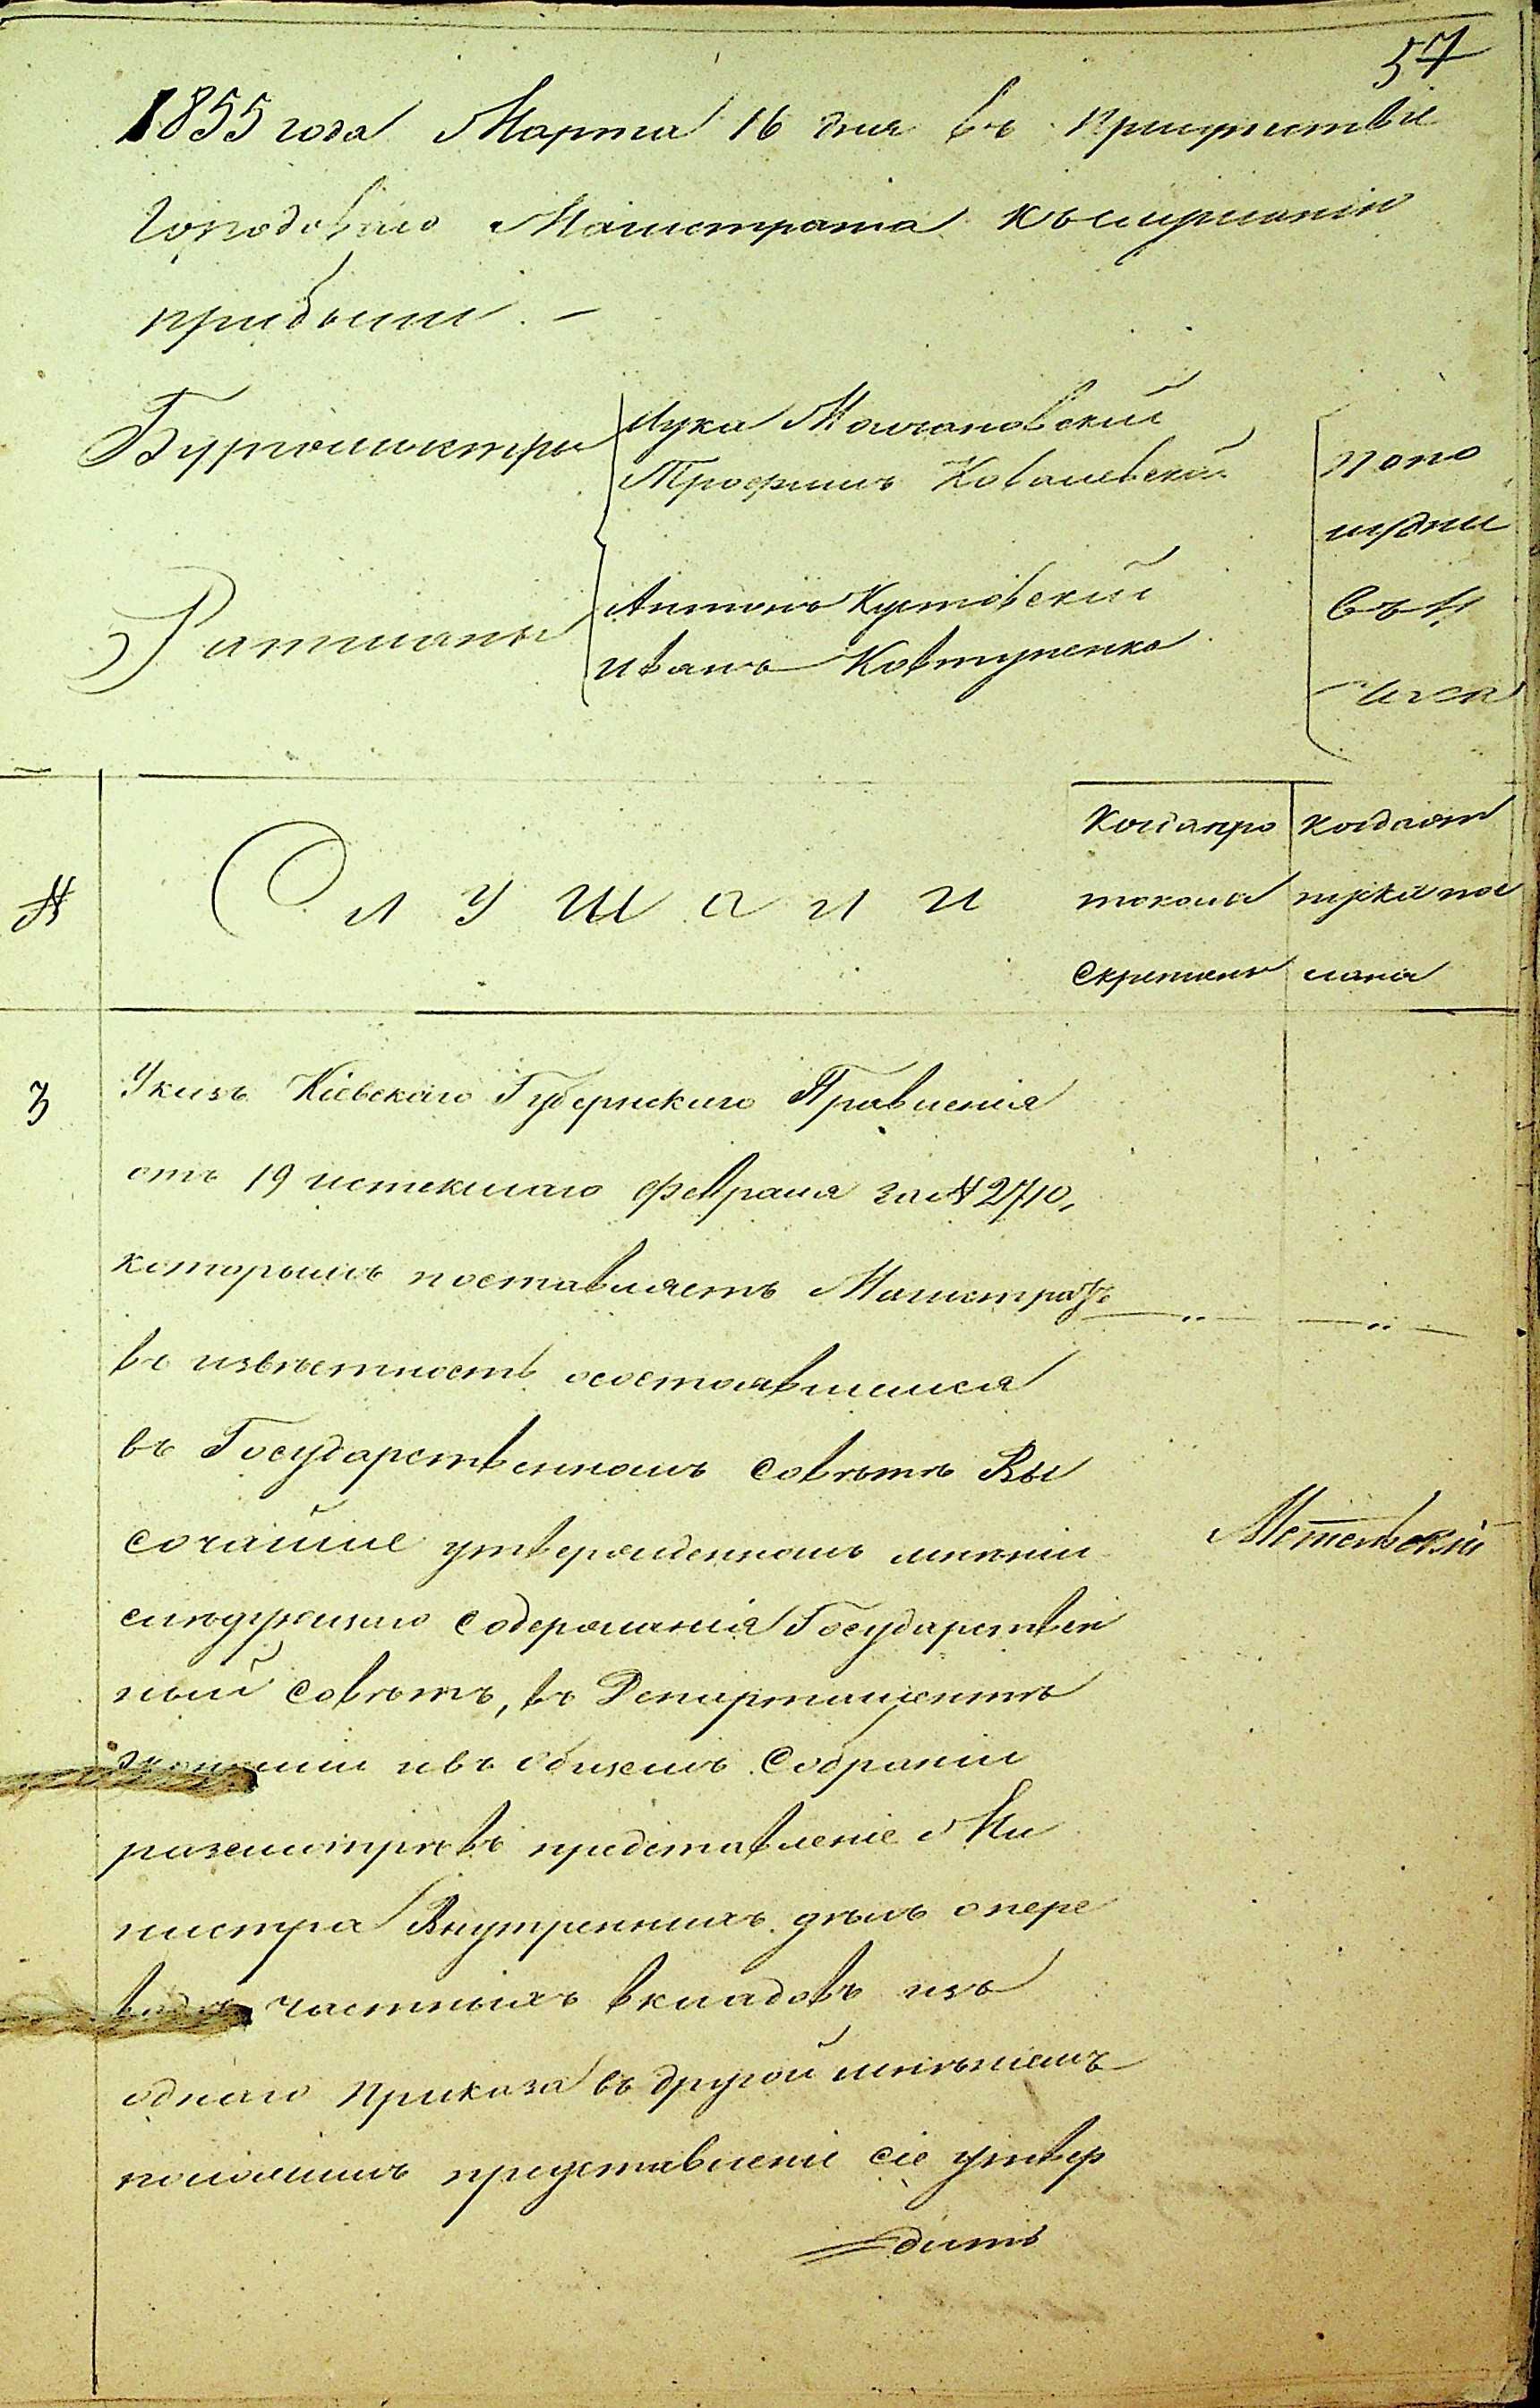 57
1855 года Марта 16 дня въ присутствіе
Городоваго Магистрата къ слушанію
прибыли. –
Бургомистры
Лука Молчановскій
Трофимъ Ковалевскій
Ратманы
Антонъ Кутовскій
Иванъ Ковтуненко
попо
лудни
въ 11
часа
№
Слушали
Когда про
токолъ
скрепленъ
Когда от
пускъ пос
лана
3
Указъ Кіевскаго Губернскаго Правленія
отъ 19 истекшаго Февраля за № 2710,
которымъ поставляетъ Магистратъ
въ извѣстность осостоявшемся
въ Государственномъ совѣтѣ Вы
сочайше утвержденномъ мнѣніи
слѣдующаго содержанія Государствен
ный совѣтъ, въ Департаментѣ
экономіи ивъ общемъ Собраніи
разсмотрѣвъ представленіе Ми
нистра Внутреннихъ дѣлъ опере
водѣ частныхъ вкладовъ изъ
однаго приказа въ другой мнѣніемъ
положилъ представленіе сіе утвер
дить